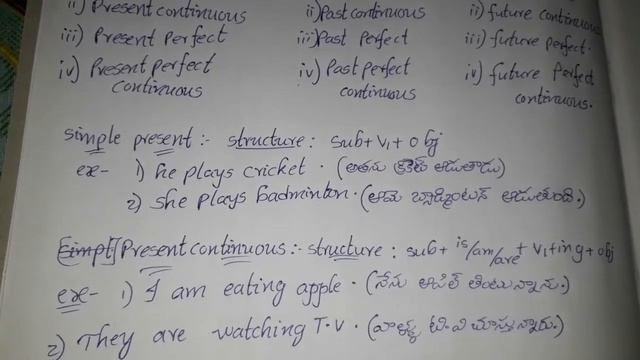 ii) Present continuous ii) Past continuous ii) future continuous
iii) Present Perfect iii) Past Perfect iii) future perfect.
iv) Present perfect iv) Past perfect iv) future Perfect
continuous continuous continuous.
simple present :- structure : sub + V₁ + obj
ex- 1) he plays cricket. (అతను క్రికెట్ ఆడుతాడు)
2) she plays badminton. (ఆమె బ్యాడ్మింటన్ ఆడుతుంది.)
[simpt] Present continuous :- structure : sub + is/am/are + V₁ + ing + obj
ex- 1) I am eating apple. (నేను ఆపిల్ తింటున్నాను.)
2) They are watching T.V. (వాళ్ళు టి.వి చూస్తున్నారు.)